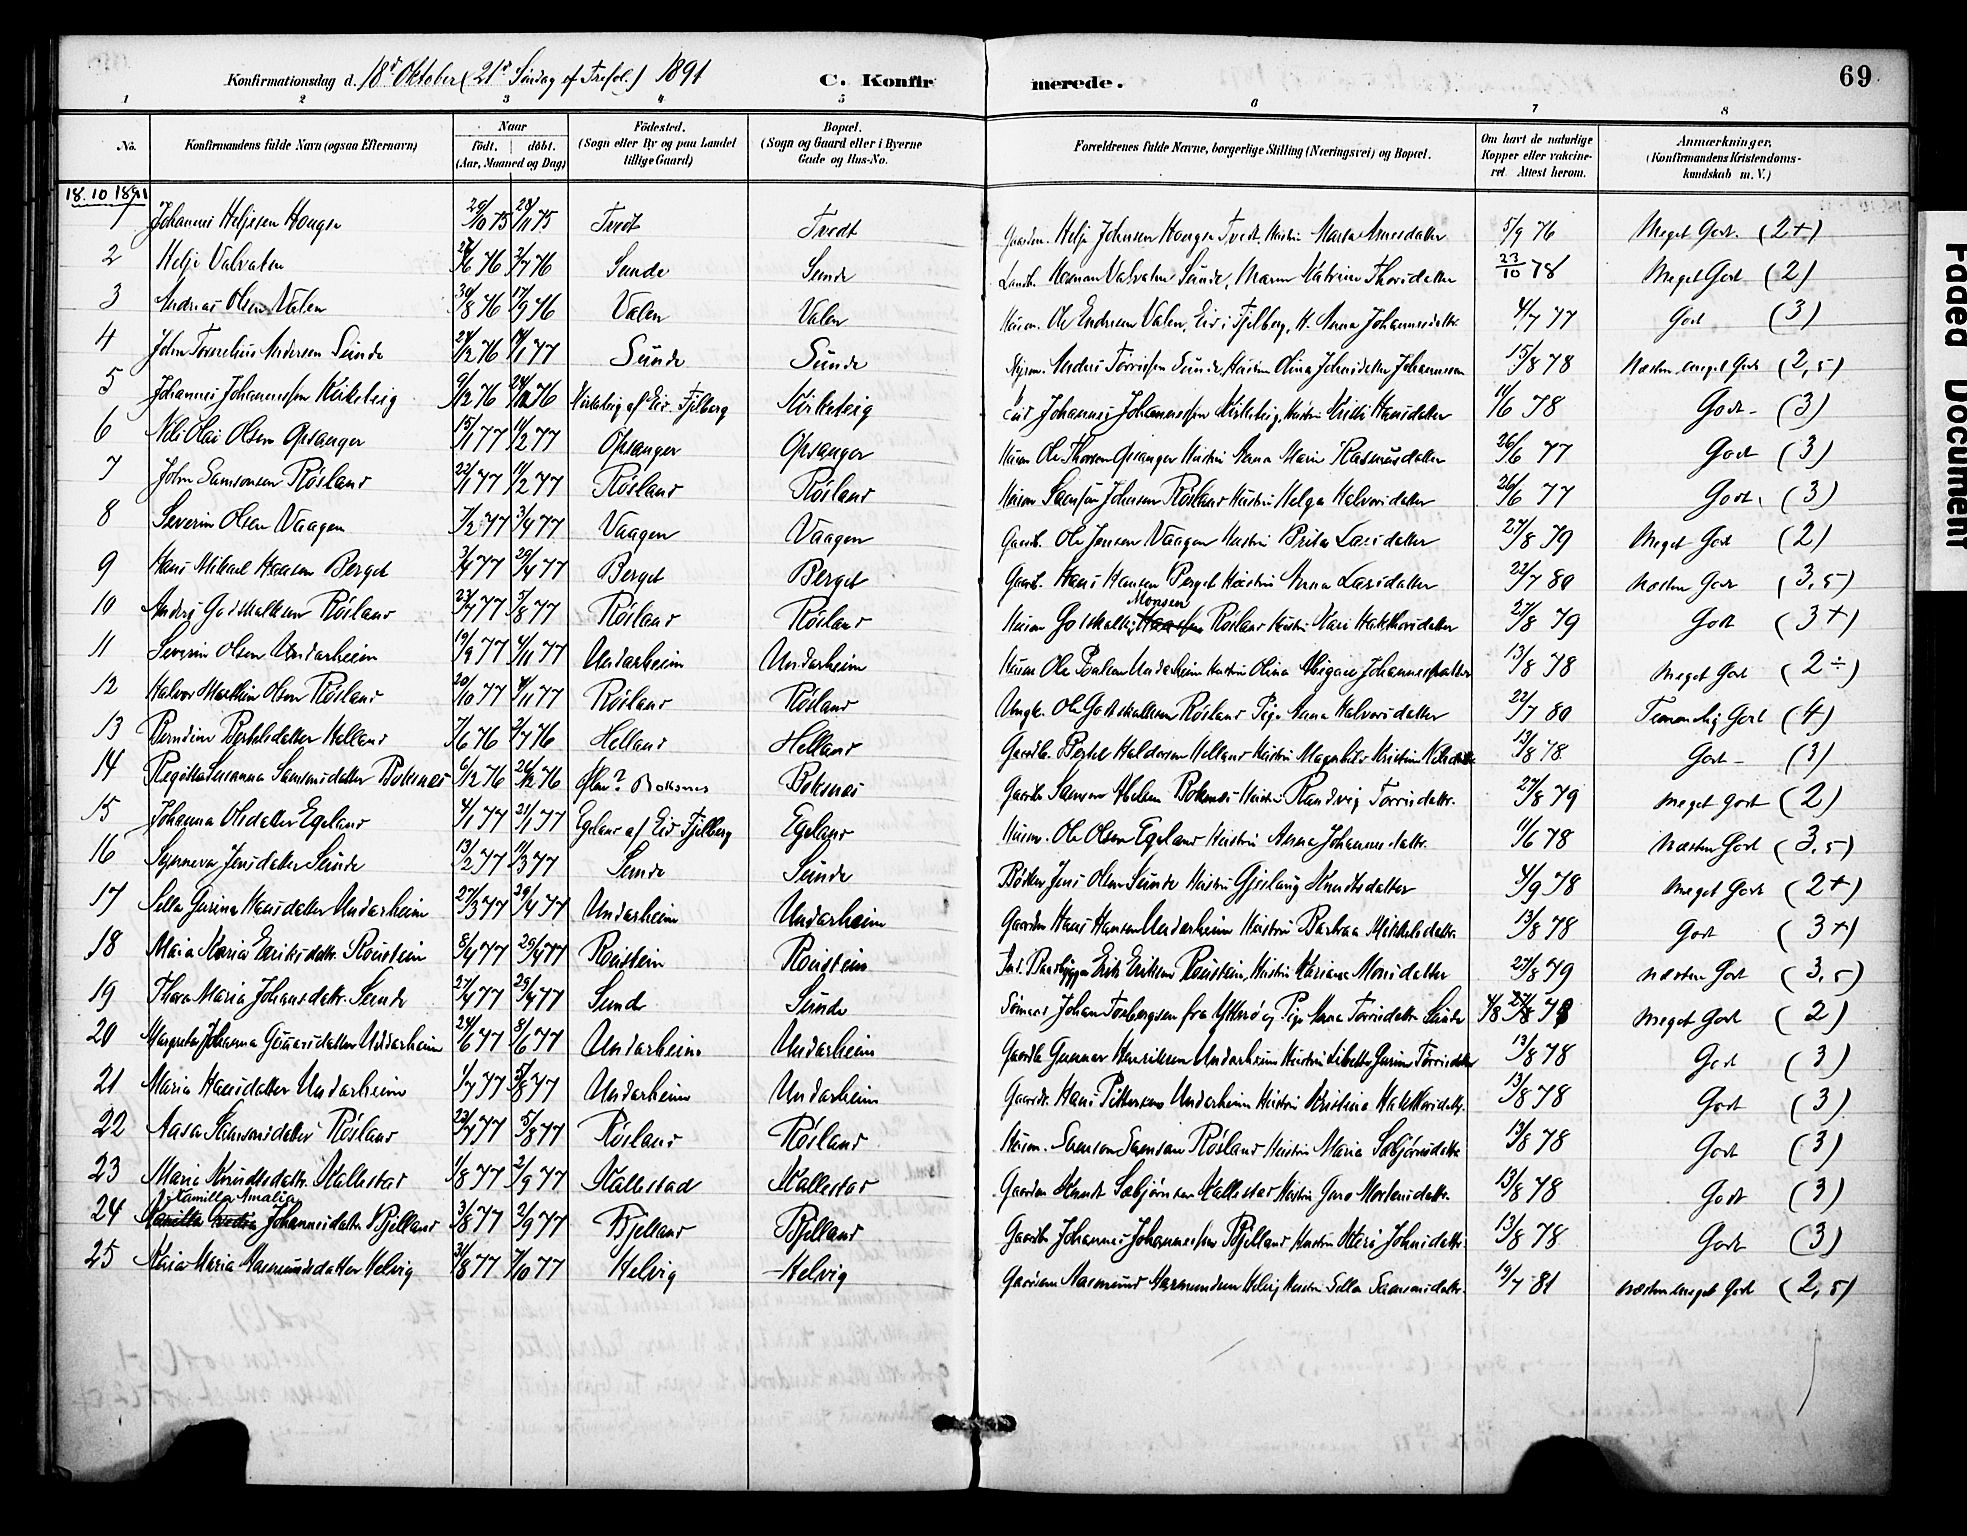 Konfirmationsdag d. 18d Oktober (21d Søndag ef Trefol.) 1891 C. Konfirmerede. 69
1 2 3 4 5 6 7 8
No. Konfirmandens fulde Navn (ogsaa Efternavn) Naar födt. döbt. (Aar, Maaned og Dag) Födested. (Sogn eller By og paa Landet tillige Gaard) Bopæl. (Sogn og Gaard eller i Byerne Gade og Hus-No. Forældrenes fulde Navne, borgerlige Stilling (Næringsvei) og Bopæl. Om havt de naturlige Kopper eller vakcineret. Attest herom. Anmærkninger, (Konfirmandens Kristendomskundskab m. V.)
18.10 1891
1 Johannes Heljesen Hauge 29/10 75 28/11 75 Tvedt Tvedt Gaardm. Helje Johnsen Hauge Tvedt, Hustru Marta Arnesdatter 5/9 76 Meget Godt. (2+)
2 Helje Valvatne /6 76 2/7 76 Sunde Sunde Valvatne Sunde, Maren Katrine Thorsdatter 23/10 78 Meget Godt (2)
3 Andreas Olsen Valen 30/8 76 17/9 76 Valen Valen Husm. Ole Endresen Valen, Eid i Fjelberg, H. Anna Johannesdatter 4/7 77 Godt (3)
4 John Andersen Sunde /12 76 /1 77 Sunde Sunde Anders Torrissen Sunde, Hustru Olina Johnsdatter 15/8 78 Næsten meget Godt (2,5)
5 Johannes Johannessen Kirkeleig 9/12 76 24/12 76 Kirkeleig af Eid Fjelberg Kirkeleig Johannes Johannessen Kirkeleig, Hustru Hansdatter 11/6 78 Godt - (3)
6 Nils Olai Olsen Opsanger 15/1 77 11/2 77 Opsanger Opsanger Husm. Ole Thorsen Opsanger Hustru Anna Marie Rasmusdatter 26/6 77 Godt (3)
7 John Samsonsen Røsland 22/1 77 11/2 77 Røsland Røsland Husm. Samson Johnsen Røsland Hustru Helga Halvorsdatter 26/6 77 Godt. (3)
8 Severin Olsen Vaagen 7/2 77 3/4 77 Vaagen Vaagen Gaardb. Ole Jensen Vaagen Hustru Brita Larsdatter 27/8 79 Meget Godt (2)
9 Hans Mikael Hansen Berget 3/4 77 29/4 77 Berget Berget Gaardb. Hans Hansen Berget Hustru Anna Larsdatter 22/7 80 Næsten Godt (3,5)
10 Anders Godskalksen Røsland 23/7 77 5/8 77 Røsland Røsland Husm. Godskalk Monsen Røsland Hustru Kari Hakthorsdatter 27/8 79 Godt (3+)
11 Severin Olsen Undarheim 19/9 77 4/11 77 Undarheim Undarheim Husm. Ole Poulsen Undarheim Hustru Olina Abigael Johannesdatter 13/8 78 Meget Godt (2÷)
12 Halvor Martin Olsen Røsland 20/10 77 4/11 77 Røsland Røsland Ungk. Ole Godskalksen Røsland Pige Anna Halvorsdatter 22/7 80 Temmelig Godt (4)
13 Berndine Berthelsdatter Helland 7/6 76 2/7 76 Helland Helland Gaardb. Berthel Haldorsen Helland Hustru Magnhild Kristine Nilsdatter 13/8 78 Godt - (3)
14 Regitta Susanna Samsonsdatter Boksnes 6/12 76 26/12 76 Ølen? Boksnes Boksnes Gaardb. Samson Boksnes Hustru Randvig Torrisdatter. 27/8 79 Meget Godt (2)
15 Johanna Olsdatter Egeland 4/1 77 21/1 77 Egeland af Eid Fjelberg Egeland Husm. Ole Olsen Egeland Hustru Anna Johannesdatter. 11/6 78 Næsten Godt (3,5)
16 Synneva Jensdatter Sunde 13/2 77 11/3 77 Sunde Sunde Bødker Jens Olsen Sunde Hustru Gjeslaug Knudsdatter 4/9 78 Meget Godt (2+)
17 Sella Gurina Hansdatter Undarheim 27/3 77 29/4 77 Undarheim Undarheim Gaardm Hans Hansen Undarheim Hustru Barbra Mikkelsdatter 13/8 78 Godt (3+)
18 Maria Eriksdatter Roustein 8/4 77 29/4 77 Roustein Roustein Erik Eriksen Roustein, Hustru Mariane Monsdatter 27/8 79 Næsten Godt (3,5)
19 Thora Maria Johansdatter Sunde 27/4 77 29/4 77 Sunde Sunde Sømand Johan Torbergsen fra Ytterø og Pige Anna Torrisdatter Sunde Meget Godt (2)
20 Margreta Johanna Gunnarsdatter Undarheim 24/6 77 8/6 77 Undarheim Undarheim Gaardb. Gunnar Henriksen Undarheim Hustru Lisbeth Gurine Torrisdatter 13/8 78 Godt (3)
21 Maria Hansdatter Undarheim 1/7 77 5/8 77 Undarheim Undarheim Gaardb. Hans Pettersen Undarheim Hustru Kristina Hakthorsdatter. 13/8 78 Godt (3)
22 Aasa Samsonsdatter Røsland 23/7 77 5/8 77 Røsland Røsland Husm. Samson Samsonsen Røsland Hustru Maria Sæbjørnsdatter 13/8 78 Godt (3)
23 Maria Knudsdatter. Kallestad 1/8 77 2/9 77 Kallestad Kallestad Gaardm Knudt Sæbjørnsen Kallestad Hustru Guro Mortensdatter. 13/8 78 Godt (3)
24 Kamilla Amalia Johannesdatter Bjelland 3/8 77 2/9 77 Bjelland Bjelland Gaardb. Johannes Johannessen Bjelland Hustru Johnsdatter. 13/8 78 Godt (3)
25 Maria Aasmundsdatter Helvig 31/8 77 7/10 77 Helvig Helvig Gaardm Aasmund Aasmundsen Helvig Hustru Sella Samsonsdatter. 19/7 81 Næsten meget Godt (2,5)
Faded Document